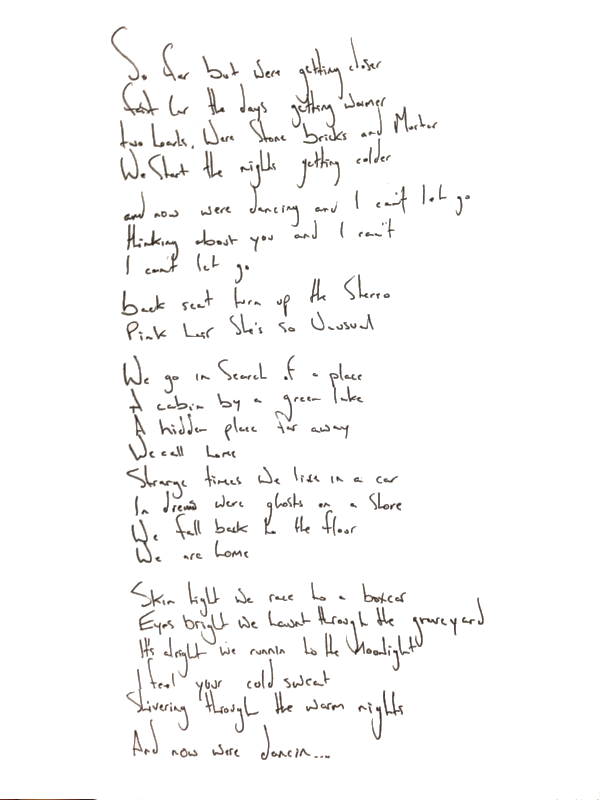 So far but were getting closer
fast for the days getting warmer
two hearts, Were Stone bricks and Mortar
We Start the nights getting colder
and now were dancing and I can't let go
thinking about you and I can't
I can't let go
back seat turn up the Stereo
Pink hair She's so Unusual
We go in Search of a place
A cabin by a green lake
A hidden place far away
We call home
Strange times We live in a car
In dreams were ghosts on a Shore
We fall back to the floor
We are home
Skin tight We race to a boxcar
Eyes bright We haunt through the graveyard
It's alright We runnin to the Moonlight
I feel your cold sweat
Shivering through the warm nights
And now were dancin....